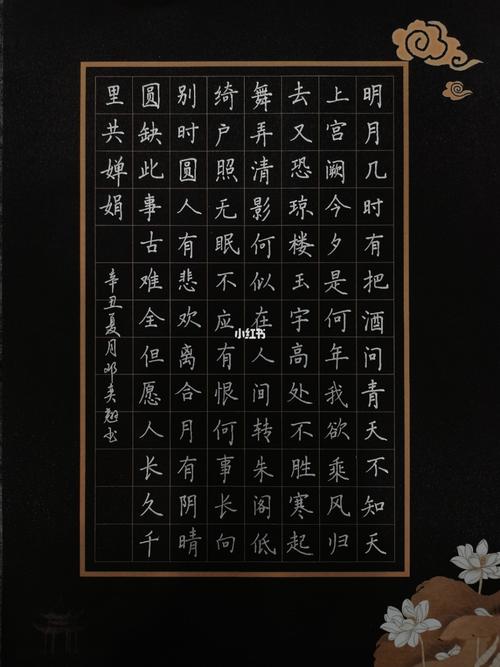 明月几时有把酒问青天不知天
上宫阙今夕是何年我欲乘风归
去又恐琼楼玉宇高处不胜寒起
舞弄清影何似在人间转朱阁低
绮户照无眠不应有恨何事长向
别时圆人有悲欢离合月有阴晴
圆缺此事古难全但愿人长久千
里共婵娟
辛丑夏月邓奕书
小红书